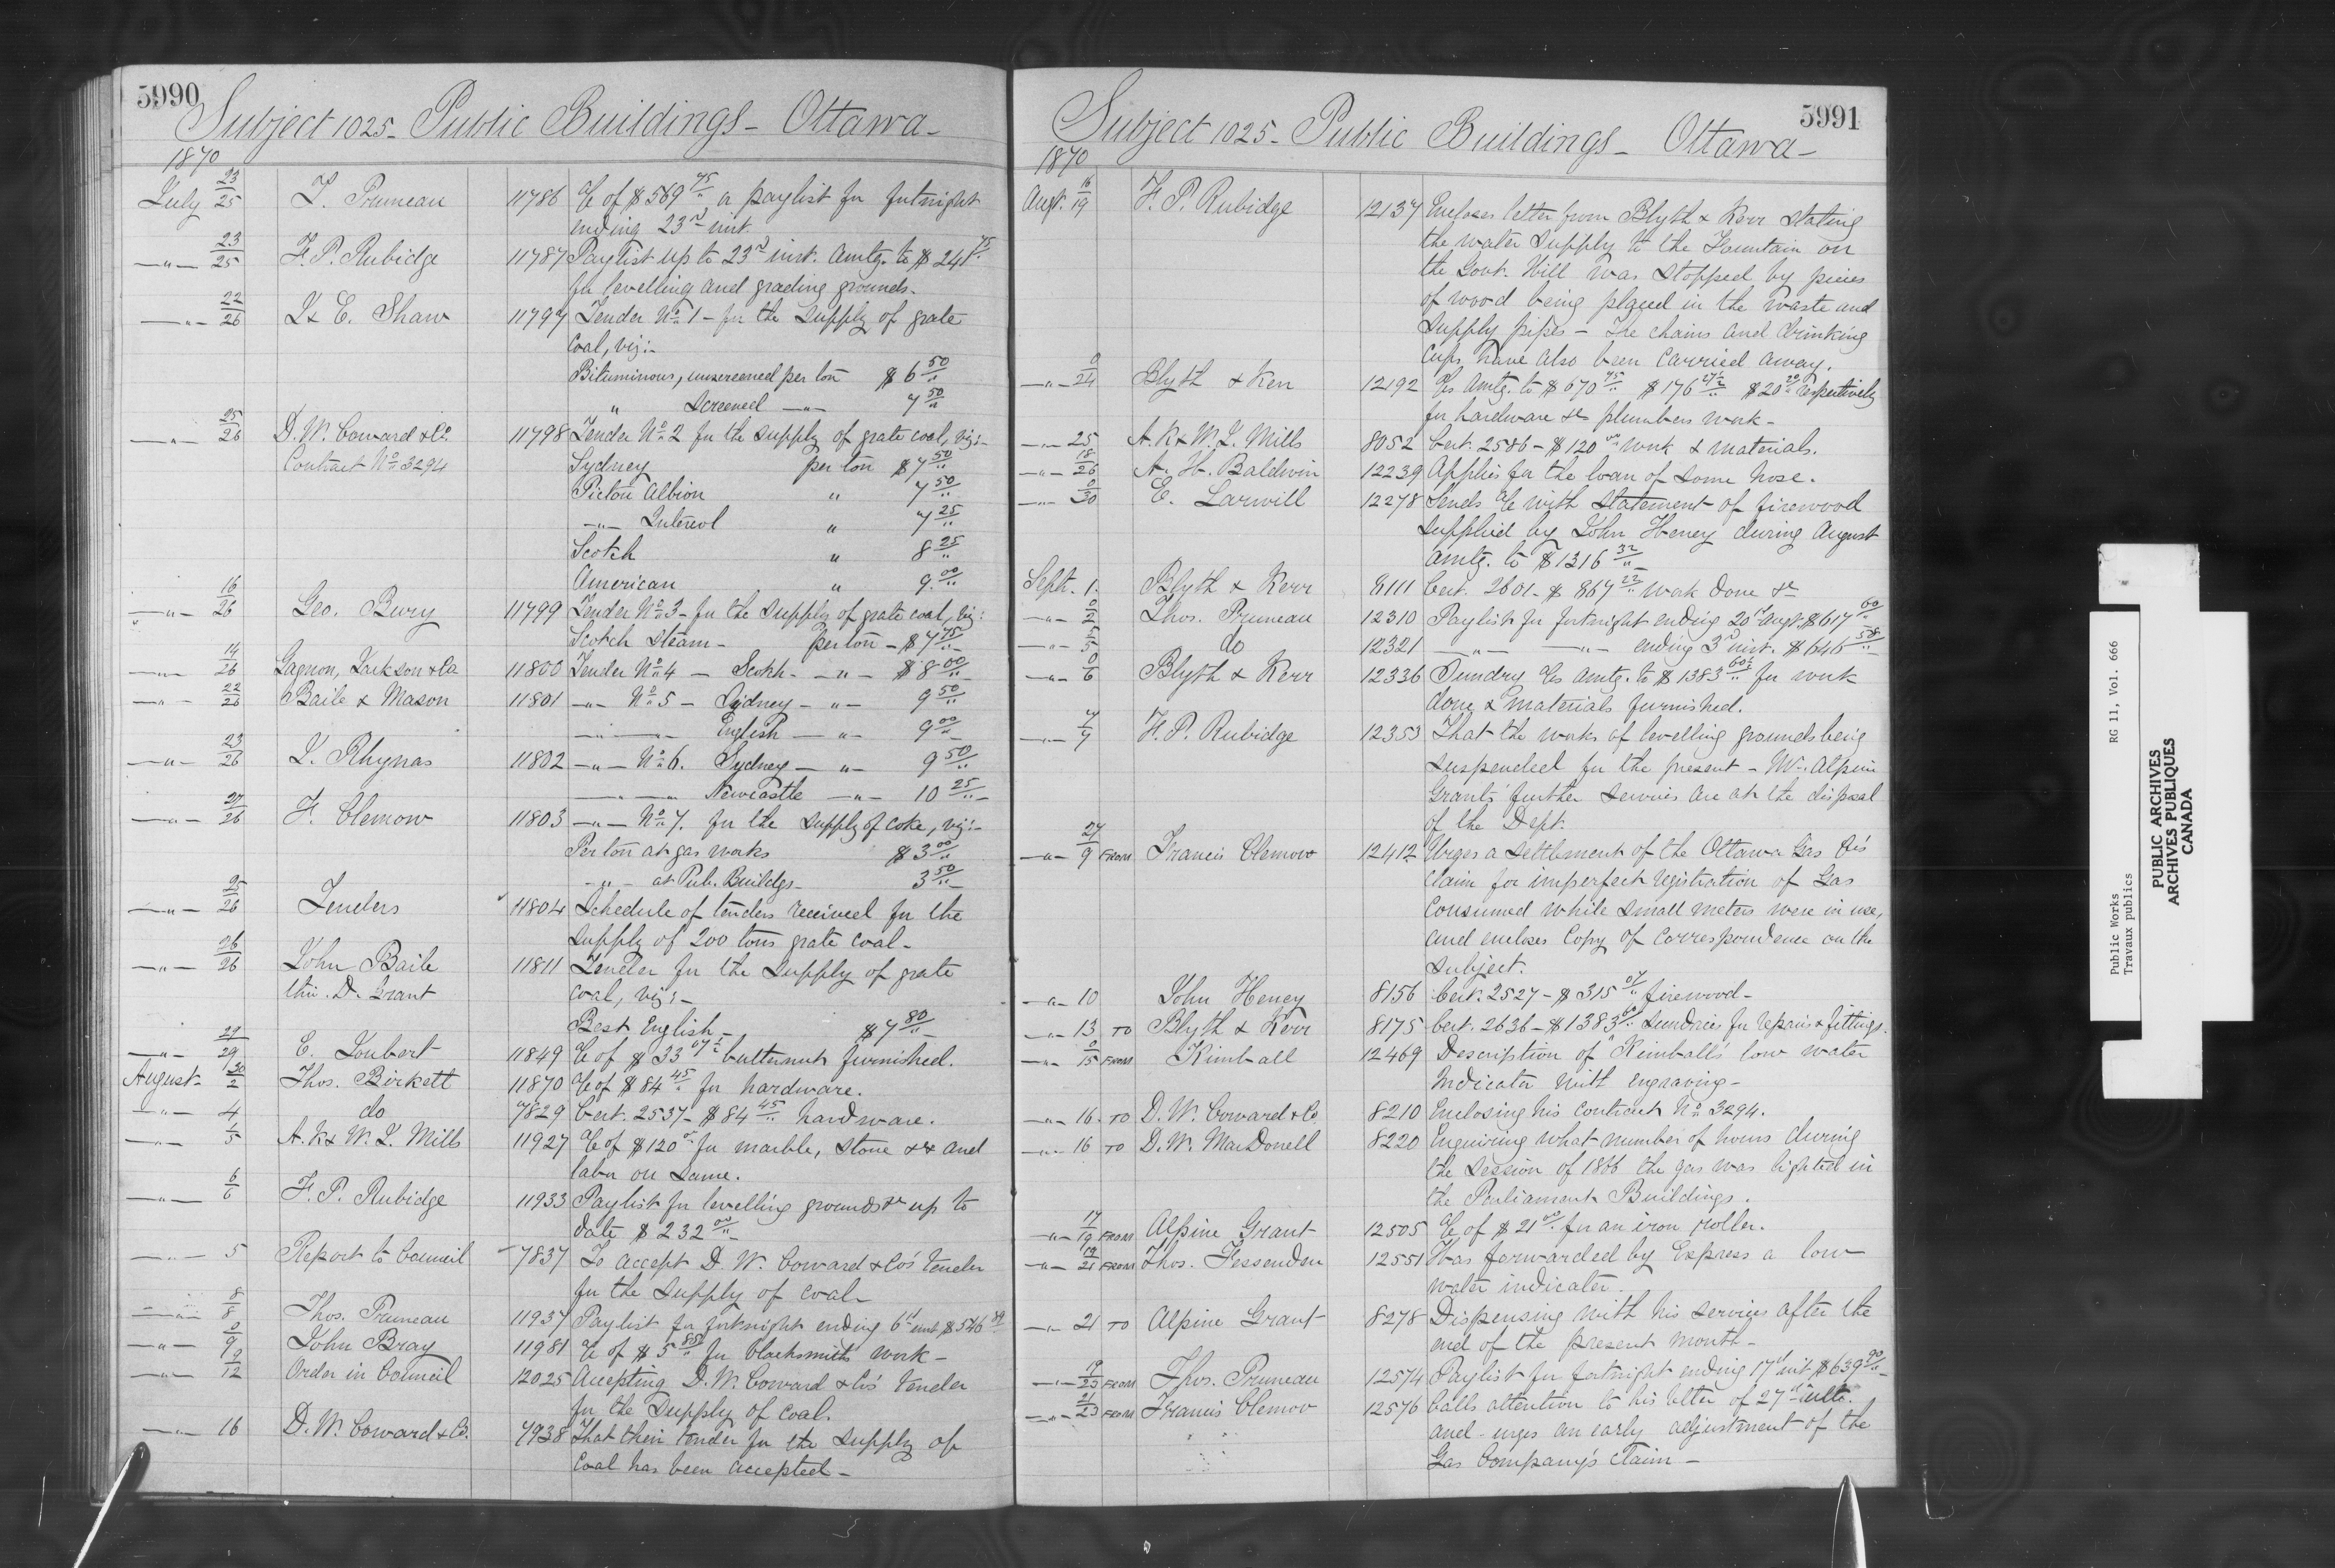 5990
Subject 1025 - Public Buildings - Ottawa -
1870
July 23/25 T. Pruneau 11786 a/c of $569 75/" a paylist for fortnight
ending 23rd inst.
-"- 23/25 F. P. Rubidge 11787 Paylist up to 23rd inst. amtg. to $241 75/"
for levelling and grading grounds -
-"- 22/26 J. & E. Shaw 11797 Tender No 1 - for the supply of grate
Coal, viz:-
Bituminous, unscreened per ton $6 50/"
" Screened -"- 7 50/"
-"- 25/26 D. W. Coward & Co. 11798 Tender No 2 for the supply of grate coal, viz:-
Contract No 3294 Sydney per ton $7 50/"
Pictou Albion " 7 50/"
-"- Intercol " 7 25/"
Scotch " 8 25/"
American " 9. 00/"
-"- 16/26 Geo. Bury 11799 Tender No 3 - for the supply of grate coal, viz:
Scotch Steam - per ton - $7 75/"
-"- 14/26 Gagnon, Jackson & Co 11800 Tender No 4 - Scotch - -"- $8 00/"
-"- 22/26 Baile & Mason 11801 -"- No 5 - Sydney - "- 9 50/"
-"- English -"- 9 00/"
-"- 23/26 J. Rhynas 11802 -"- No 6. Sydney -"- 9 50/"
-"- Newcastle -"- 10 25/"
-"- 27/26 F. Clemow 11803 -"- No 7. for the supply of Coke, viz:-
Per ton at gas works $3 00/"
-"- at Pub. Buildgs - 3 50/"
-"- 25/26 Tenders 11804 Schedule of tenders received for the
supply of 200 tons grate coal -
-"- 26/26 John Baile 11811 Tender for the supply of grate
thro. D. Grant coal, viz:-
Best English - $7 80/"
-"- 29/29 E. Joubert 11849 a/c of $33 07½/" butternut furnished.
August 30/2 Thos. Birkett 11870 a/c of $84 45/" for hardware.
-"- 4 do 7829 Cert. 2537 - $84 45/" hardware.
-"- 1/5 A. K & W. J. Mills 11927 a/c of $120 00/" for marble, stone &c and
labor on same.
-"- 6/6 F. P. Rubidge 11933 Paylist for levelling grounds &c up to
date $232 00/"
-"- 5 Report to Council 7837 To accept D. W. Coward & Co's tender
for the supply of coal -
-"- 8/8 Thos. Pruneau 11937 Paylist for fortnight ending 6th inst. $546
-"- 0/9 John Bray 11981 a/c of $5 85/" for blacksmiths work -
-"- 9/12 Order in Council 12025 Accepting D. W. Coward & Co's tender
for the supply of coal.
-"- 16 D. W. Coward & Co. 7938 That their tender for the supply of
coal has been accepted -
5991
Subject 1025 - Public Buildings - Ottawa -
1870
Augt. 16/19 F. P. Rubidge 12137 Encloses letter from Blyth & Kerr stating
the water supply to the Fountain on
the Govt. Hill was stopped by pieces
of wood being placed in the waste and
supply pipes - The chains and drinking
cups have also been carried away.
-"- 0/24 Blyth & Kerr 12192 a/cs amtg. to $670 75/" $176 67½/" $20 20/" respectively
for hardware &c plumbers work -
-"- 25 A. K & W. J. Mills 8052 Cert. 2586 - $120 00/" work & materials.
-"- 18/26 A. H. Baldwin 12239 Applies for the loan of some hose.
-"- 0/30 E. Larwill 12278 Sends a/c with statement of firewood
supplied by John Heney during August
amtg. to $1316 32/"
Sept. 1. Blyth & Kerr 8111 Cert. 2601 - $867 22/" work done &c
-"- 0/2 Thos. Pruneau 12310 Paylist for fortnight ending 20th Augt. $617 60/"
-"- 5/5 do 12321 -"- -"- ending 3rd inst. $646 58/"
-"- 0/6 Blyth & Kerr 12336 Sundry a/cs amtg. to $1383 60½/" for work
done & materials furnished.
-"- 7/7 F. P. Rubidge 12353 That the works of levelling grounds being
suspended for the present - Mr. Alpine
Grants' further services are at the disposal
of the Dept.
-"- 27/9 FROM Francis Clemow 12412 Urges a settlement of the Ottawa Gas Co's
claim for imperfect registration of Gas
consumed while small meters were in use,
and encloses copy of correspondence on the
subject.
-"- 10 John Heney 8156 Cert. 2527 - $315 07/" firewood -
-"- 13 TO Blyth & Kerr 8175 Cert. 2636 - $1383 60/" sundries for repairs & fittings.
-"- 0/15 FROM Kimball 12469 Description of "Kimball's low water
Indicator with engraving -
-"- 16. TO D. W. Coward & Co 8210 Enclosing his contract No 3294.
-"- 16 TO D. W. MacDonell 8220 Enquiring what number of hours during
the session of 1866 the gas was lighted in
the Parliament Buildings.
-"- 17/19 FROM Alpine Grant 12505 a/c of $21 00/" for an iron roller.
-"- 19/21 FROM Thos. Fessenden 12551 Has forwarded by Express a low
water indicater.
-"- 21 TO Alpine Grant 8278 Dispensing with his services after the
end of the present month -
-"- 19/23 FROM Thos. Pruneau 12574 Paylist for fortnight ending 17th inst $639 90/"
-"- 21/23 FROM Francis Clemow 12576 Calls attention to his letter of 27th ulto.
and urges an early adjustment of the
Gas Company's claim -
Public Works RG 11, Vol. 666
Travaux publics
PUBLIC ARCHIVES
ARCHIVES PUBLIQUES
CANADA